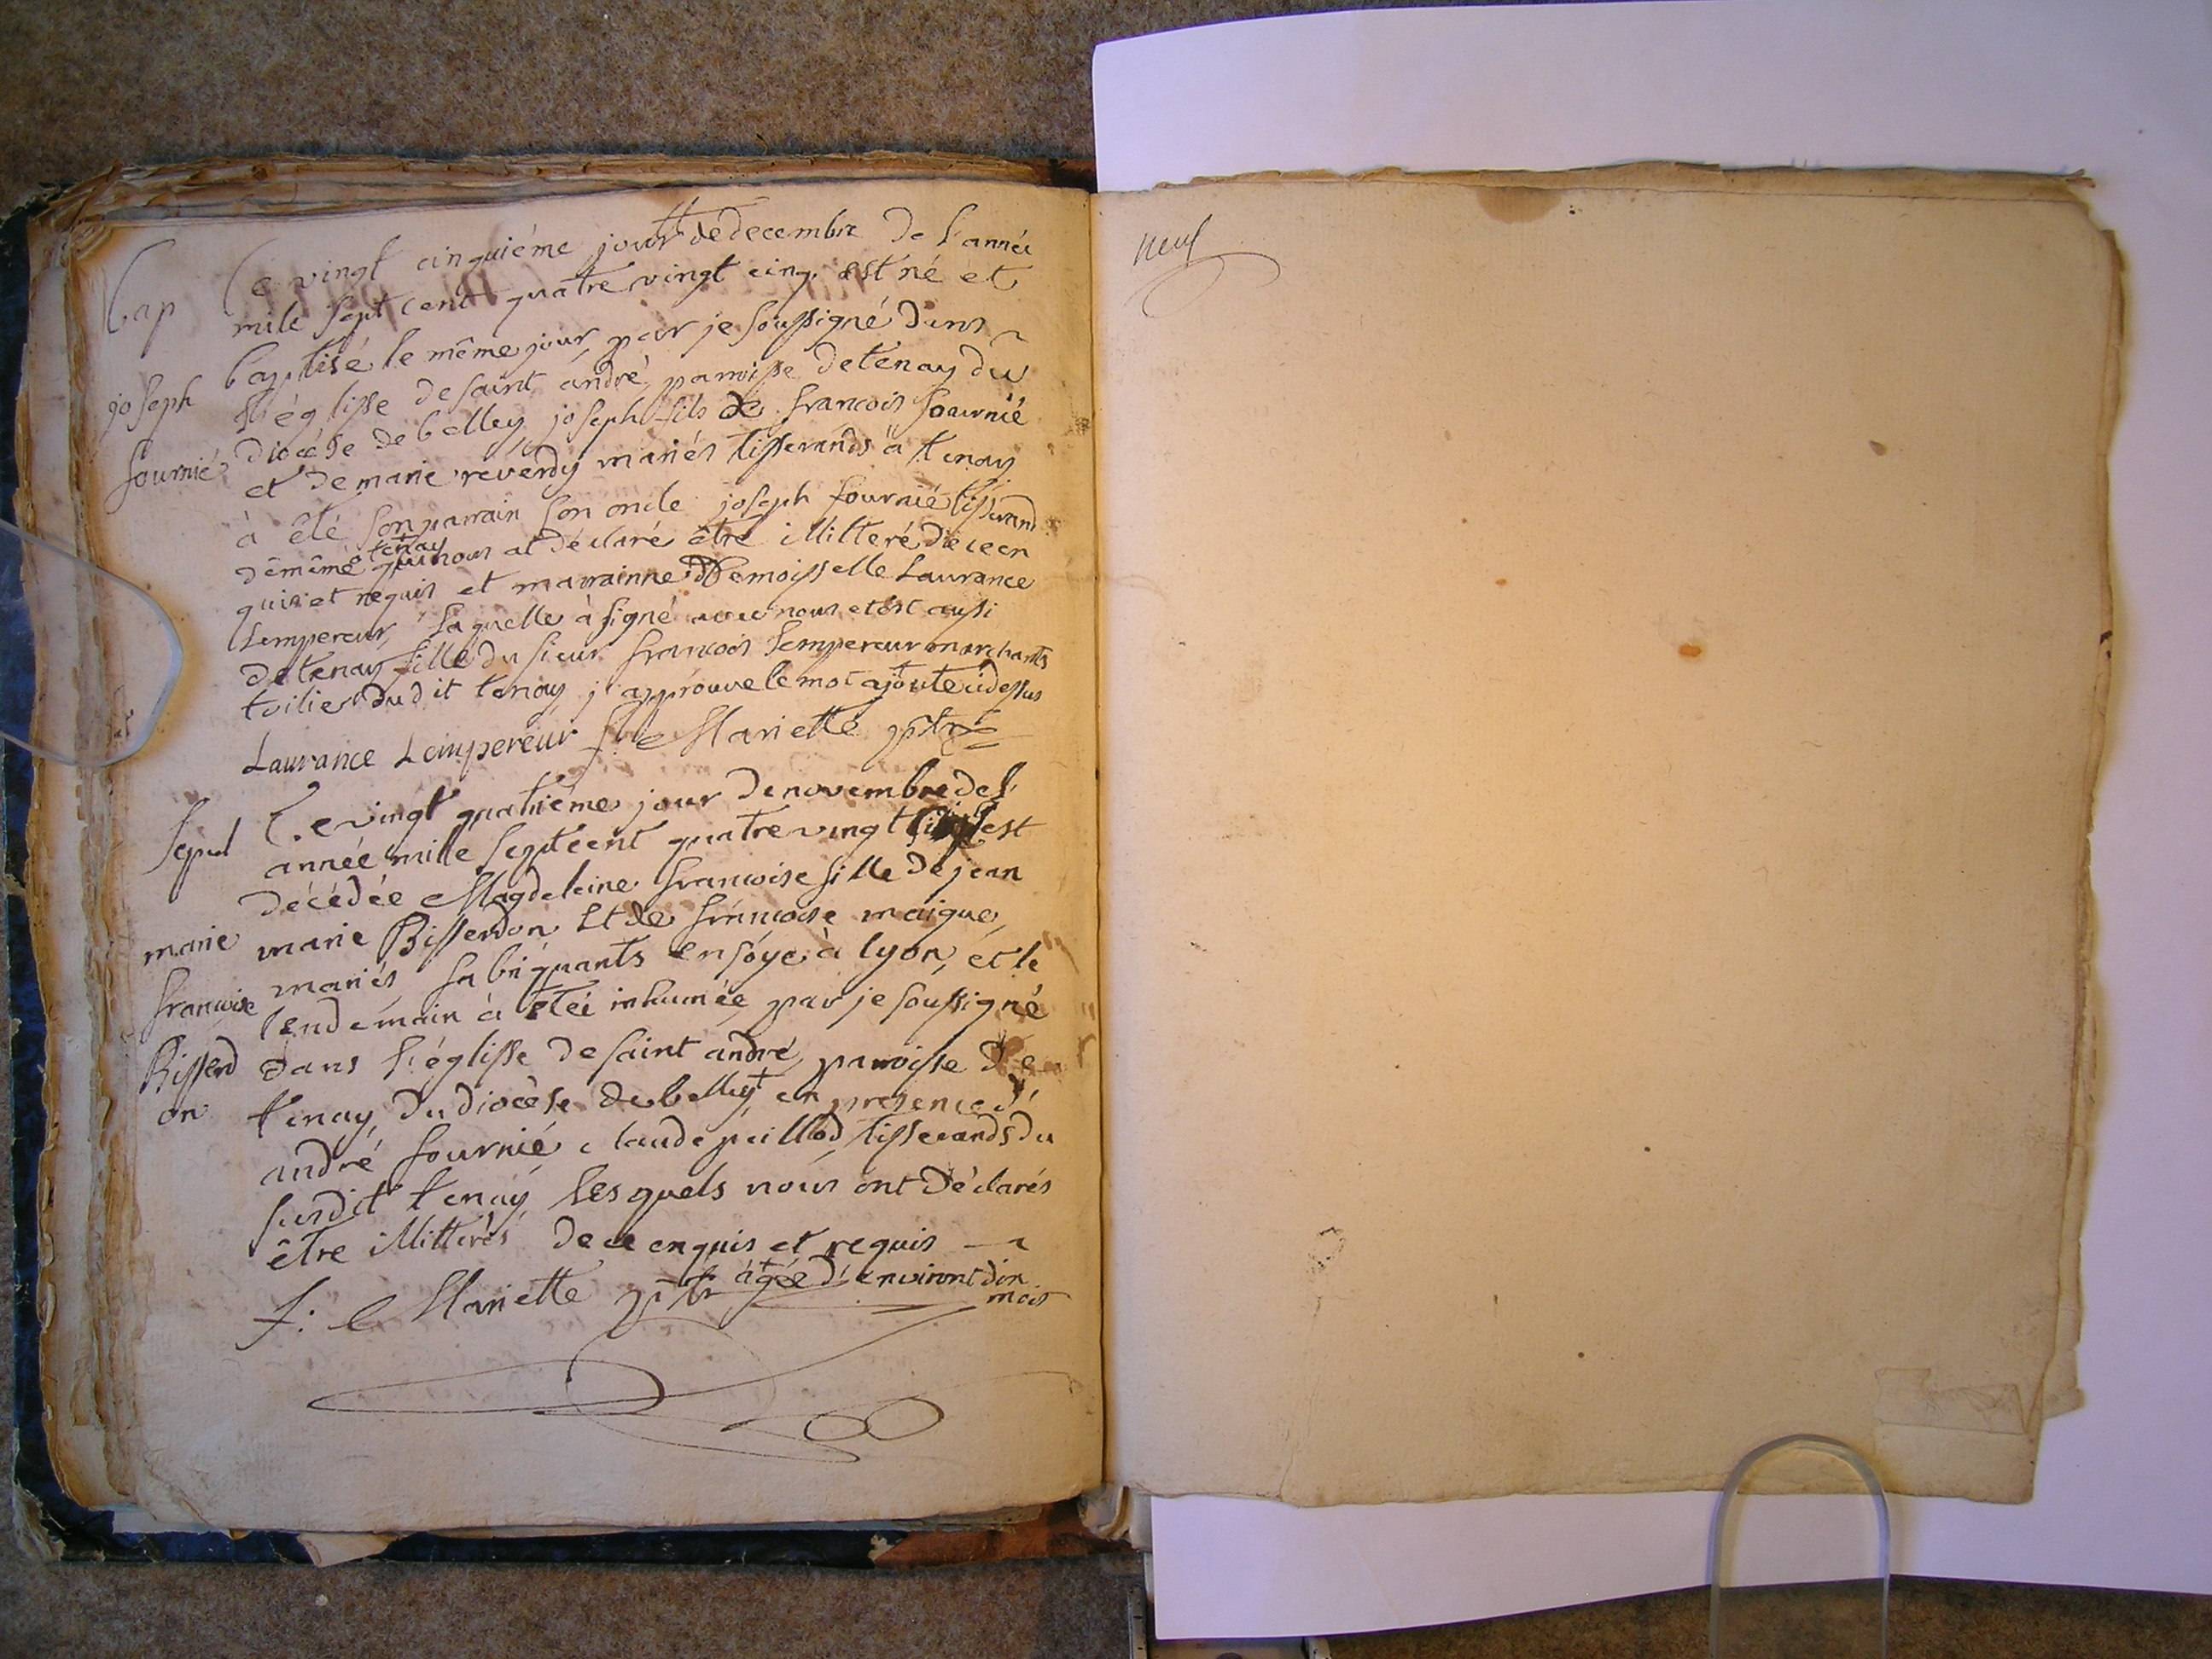 bap
joseph
fournié
Ce vingt cinquiéme jour de decembre de l'année
mile sept cent quatre vingt cinq est né et
baptisé le même jour par je soussigné dans
l'églisse de saint andré paroisse de tenay du
diocése de belley joseph fils de francois fournié
et de marie reverdy mariés tisserands à tenay
à été son parrain son oncle joseph fournié tisserand
dêmême tenay qui nous at déclaré être illitteré de ce en
quis et requis et marrainne Demoisselle Laurance
Lempereur, laquelle à signé avec nous et est aussi
de tenay fille du sieur francois Lempereur marchants
toilier dudit tenay j'approuve le mot ajouté ci dessus
Laurance Lempereur f: Mariette ptre
sepul
marie
francoise
Bisserd
on
Le vingt quatriéme jour de novembre de l'
année mille septcent quatre vingt est
décédée Magdeleine francoise fille de jean
marie Bisserdon et de francoise maigue,
mariés fabriquants en soye à lyon, et le
lendemain à étée inhumée par je soussigné
dans l'églisse de saint andré paroisse de
tenay, du diocèse de belley + en presence d'
andré fournié claude peillod tisserands du
susdit tenay, lesquels nous ont déclarés
être illitterés de ce enquis et requis
f: Mariette ptr + âgée d'environt d'un
mois
neuf